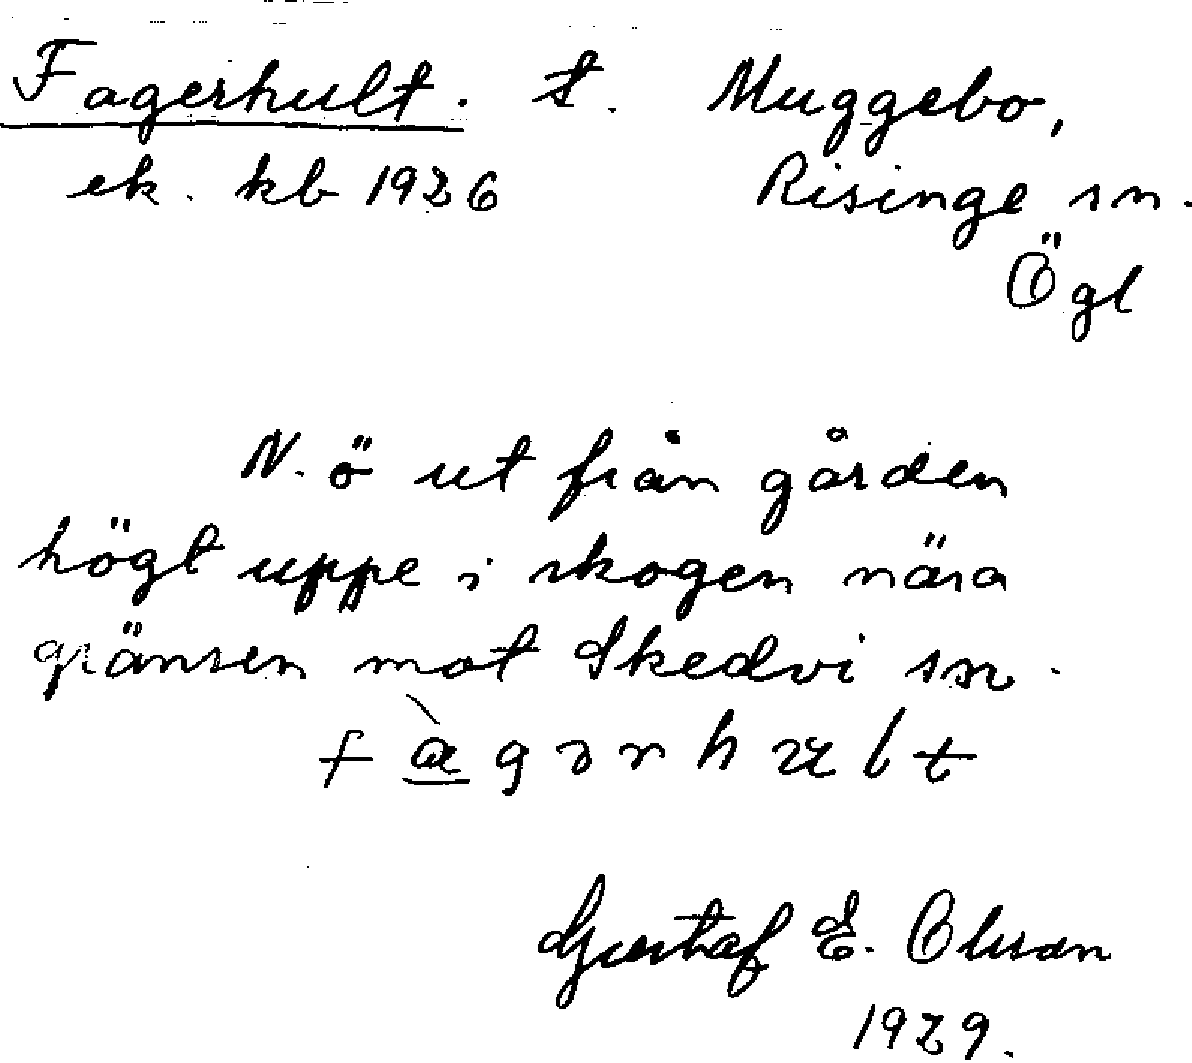 Fagerhult. t. Muggebo,
ek. kb 1926 Risinge sn.
Ögl
N. ö ut från gården
högt uppe i skogen nära
gränsen mot Skedvi sn.
Gustaf E. Olsson
1929.